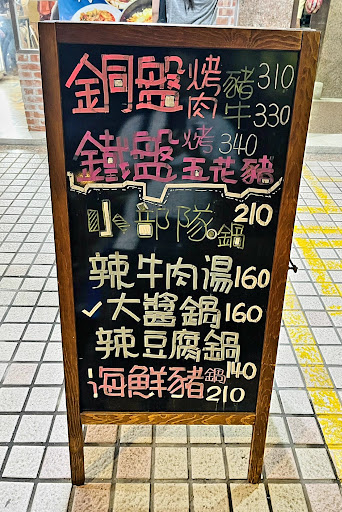 銅盤烤肉豬310
牛330
鐵盤烤340
五花豬
小部隊鍋210
辣牛肉湯160
✓大醬鍋160
辣豆腐鍋140
海鮮豬鍋210